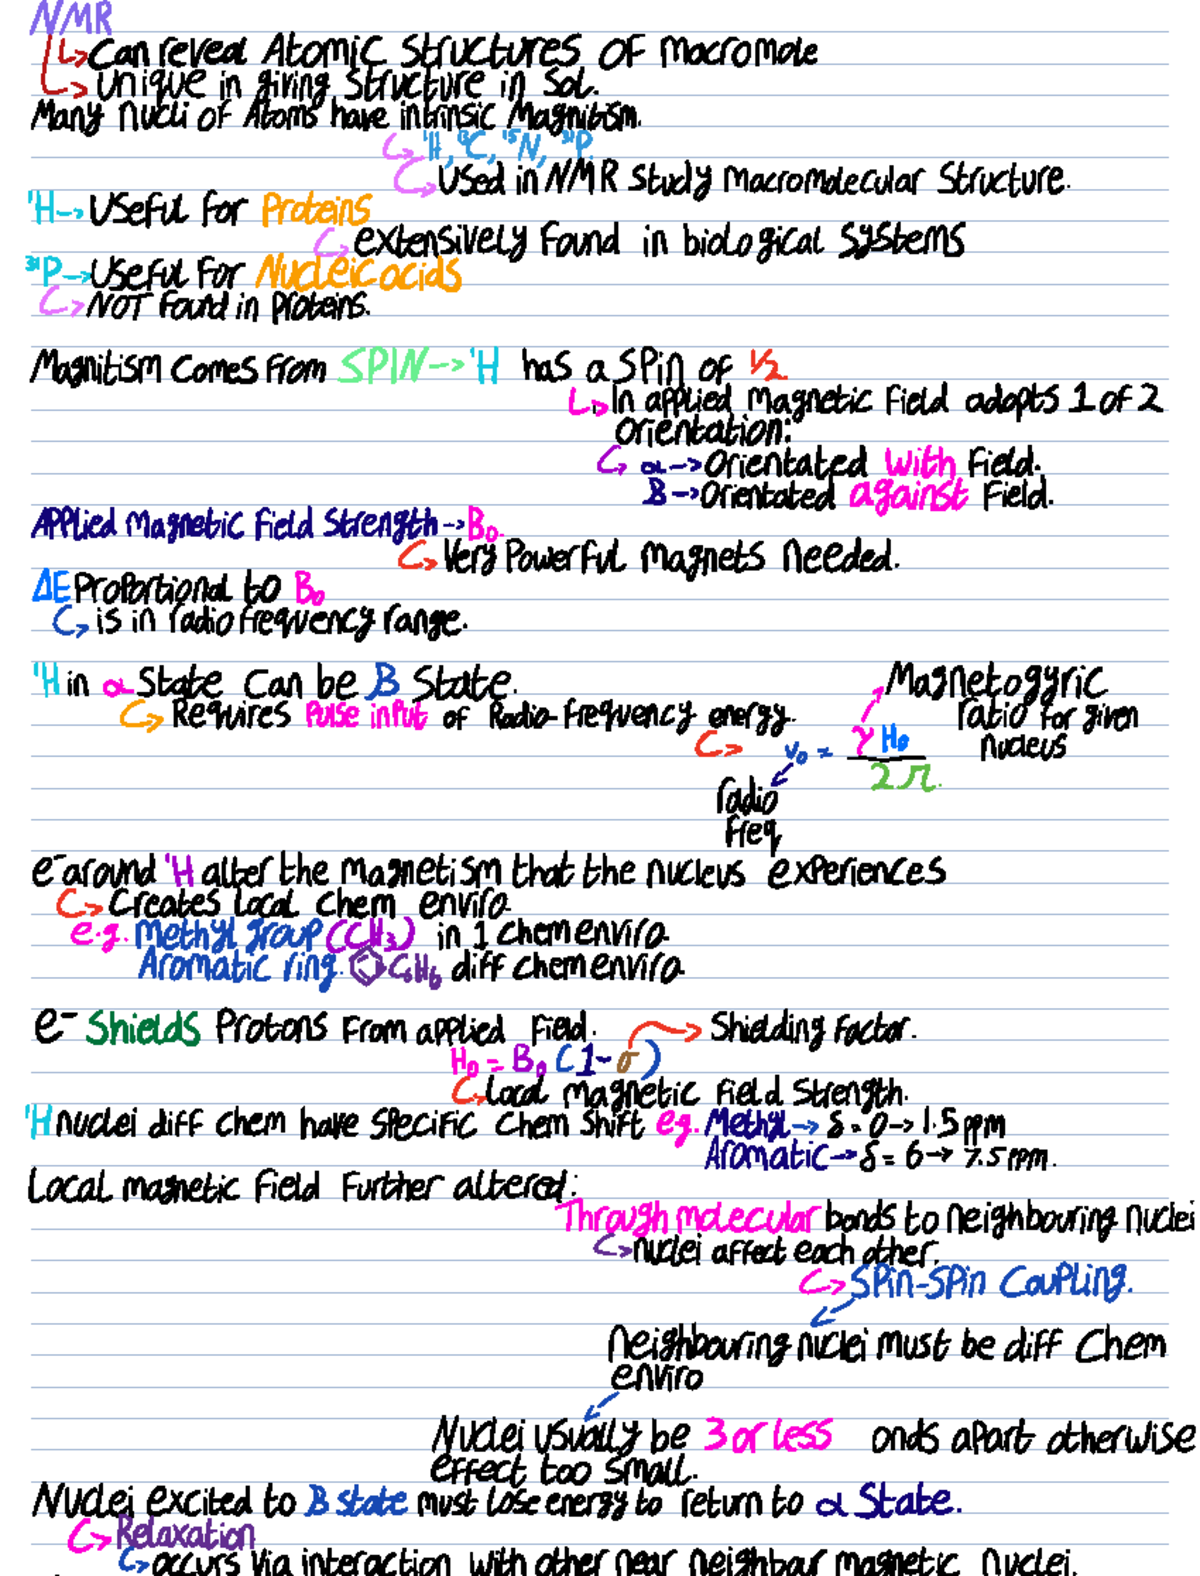 NMR
↳ Can reveal Atomic Structures of macromole
↳ unique in giving structure in sol.
Many nucli of Atoms have intrinsic Magnitism.
↳ ¹H, ¹³C, ¹⁵N, ³¹P.
↳ Used in NMR Study macromolecular Structure.
¹H → Useful for Proteins
↳ extensively found in biological systems
³¹P → Useful for Nucleic acids
↳ NOT found in Proteins.
Magnitism comes from SPIN → ¹H has a spin of ½
↳ In applied magnetic field adopts 1 of 2
orientation:
↳ α → Orientated with field.
B → Orientated against field.
Applied Magnetic Field Strength → B₀.
↳ Very Powerful magnets needed.
ΔE Proportional to B₀
↳ is in radio frequency range.
¹H in α State can be B State.
↳ Requires pulse input of Radio-frequency energy.
↳ v₀ = γ H₀ / 2π
Magnetogyric
ratio for given
nucleus
radio
freq
e⁻ around ¹H alter the magnetism that the nucleus experiences
↳ Creates local chem enviro
e.g. Methyl group (CH₃) in 1 chem enviro
Aromatic ring. C₆H₆ diff chem enviro
e⁻ Shields Protons from applied field. → Shielding factor.
H₀ = B₀ (1-σ)
↳ Local magnetic field strength.
¹H nuclei diff chem have specific chem shift eg. Methyl → δ = 0 → 1.5 ppm
Aromatic → δ = 6 → 7.5 ppm.
Local magnetic field further altered:
Through molecular bonds to neighbouring nuclei
↳ nuclei affect each other.
↳ Spin-Spin Coupling.
Neighbouring nuclei must be diff chem
enviro
Nuclei usually be 3 or less onds apart otherwise
effect too small.
Nuclei excited to B state must lose energy to return to α State.
↳ Relaxation
↳ occurs via interaction with other near neighbour magnetic nuclei.